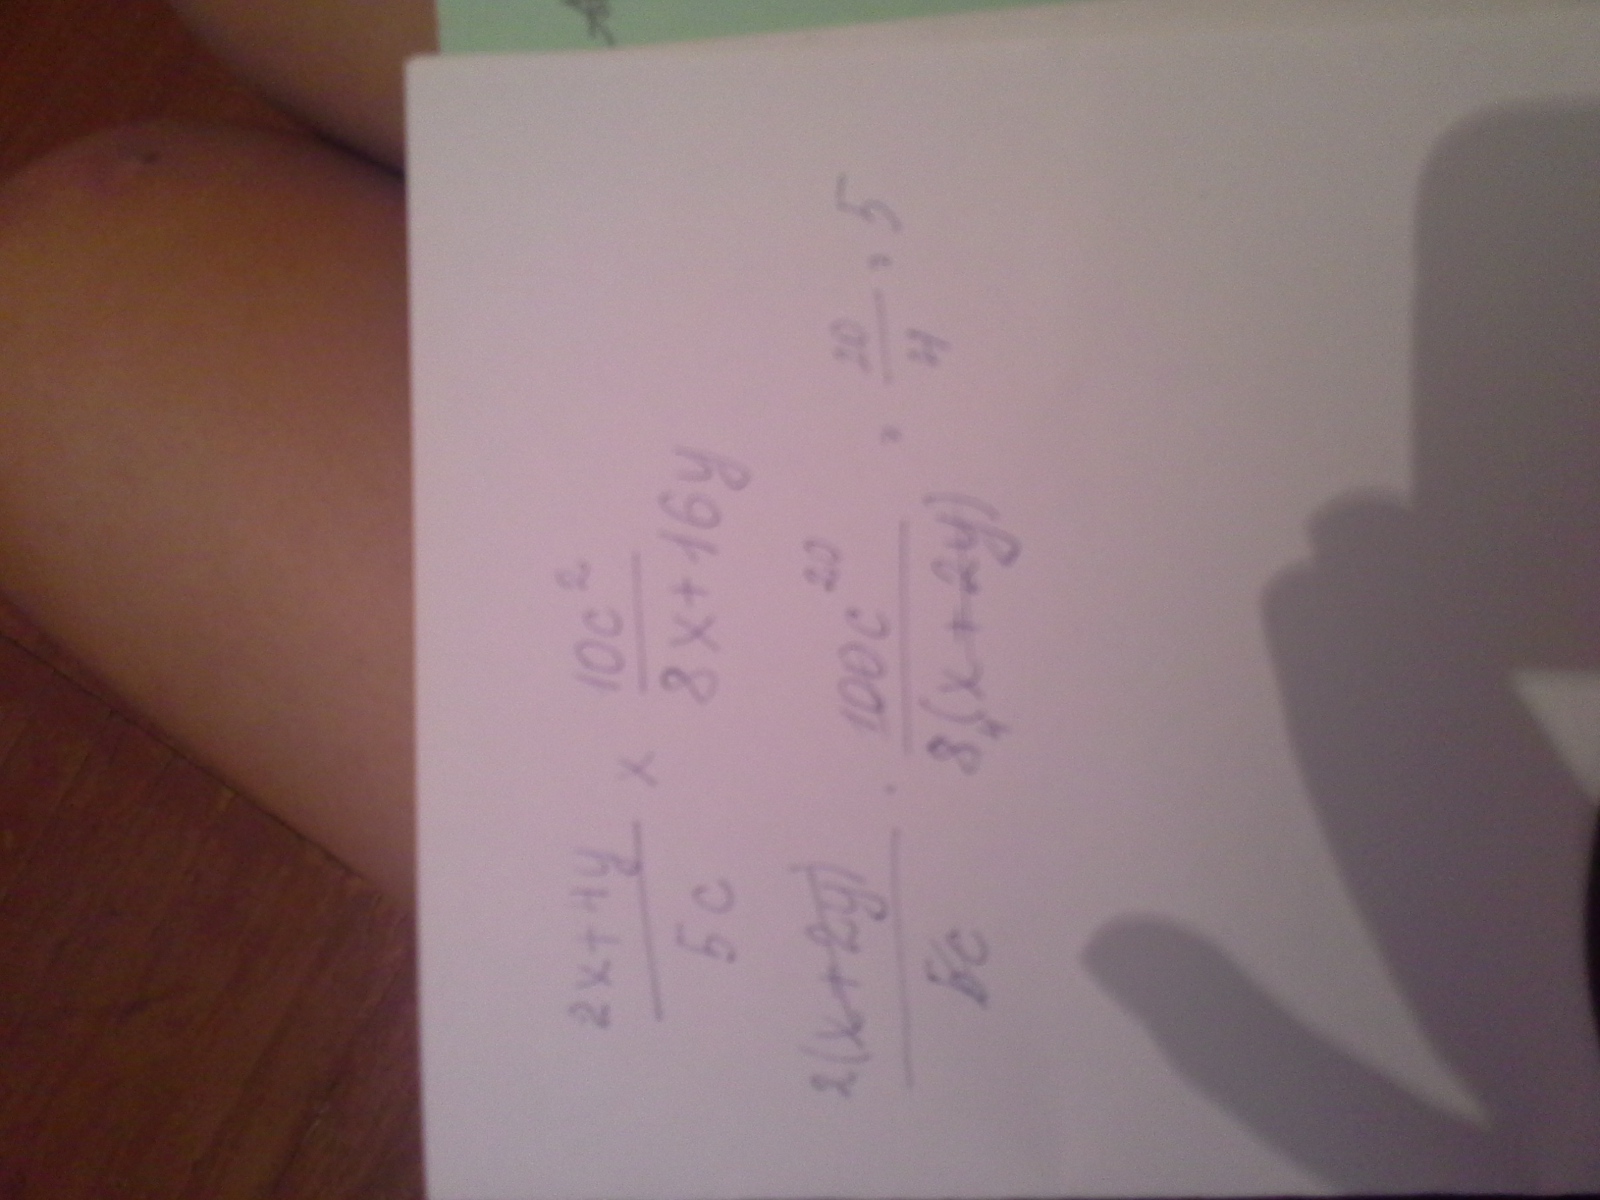 2x+4y/5c x 10c²/8x+16y
2(x+2y)/5c · 100c 20/8 4(x+2y) = 20/4 = 5